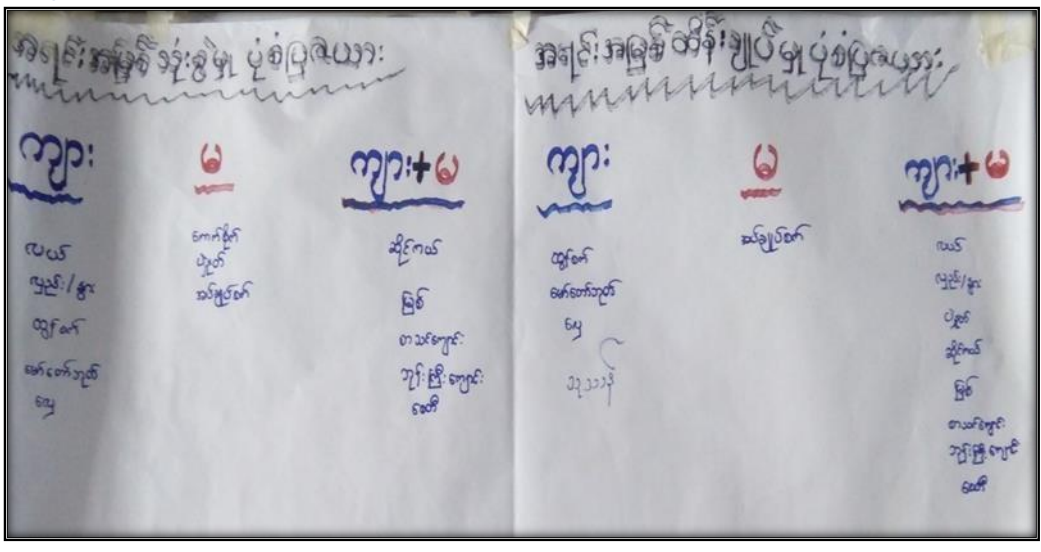 အရင်းအမြစ် သုံးစွဲမှု ပုံစံပြဇယား
ကျား
လယ်
လှည်း/နွား
ထွန်စက်
မော်တော်ဘုတ်
လှေ
မ
ကောက်စိုက်
ပဲနုတ်
အပ်ချုပ်စက်
ကျား+မ
ဆိုင်ကယ်
မြစ်
စာသင်ကျောင်း
ဘုန်းကြီးကျောင်း
စေတီ
အရင်းအမြစ် ထိန်းချုပ်မှု ပုံစံပြဇယား
ကျား
ထွန်စက်
မော်တော်ဘုတ်
လှေ
သုသာန်
မ
အပ်ချုပ်စက်
ကျား+မ
လယ်
လှည်း/နွား
ဆိုင်ကယ်
မြစ်
စာသင်ကျောင်း
ဘုန်းကြီးကျောင်း
စေတီ